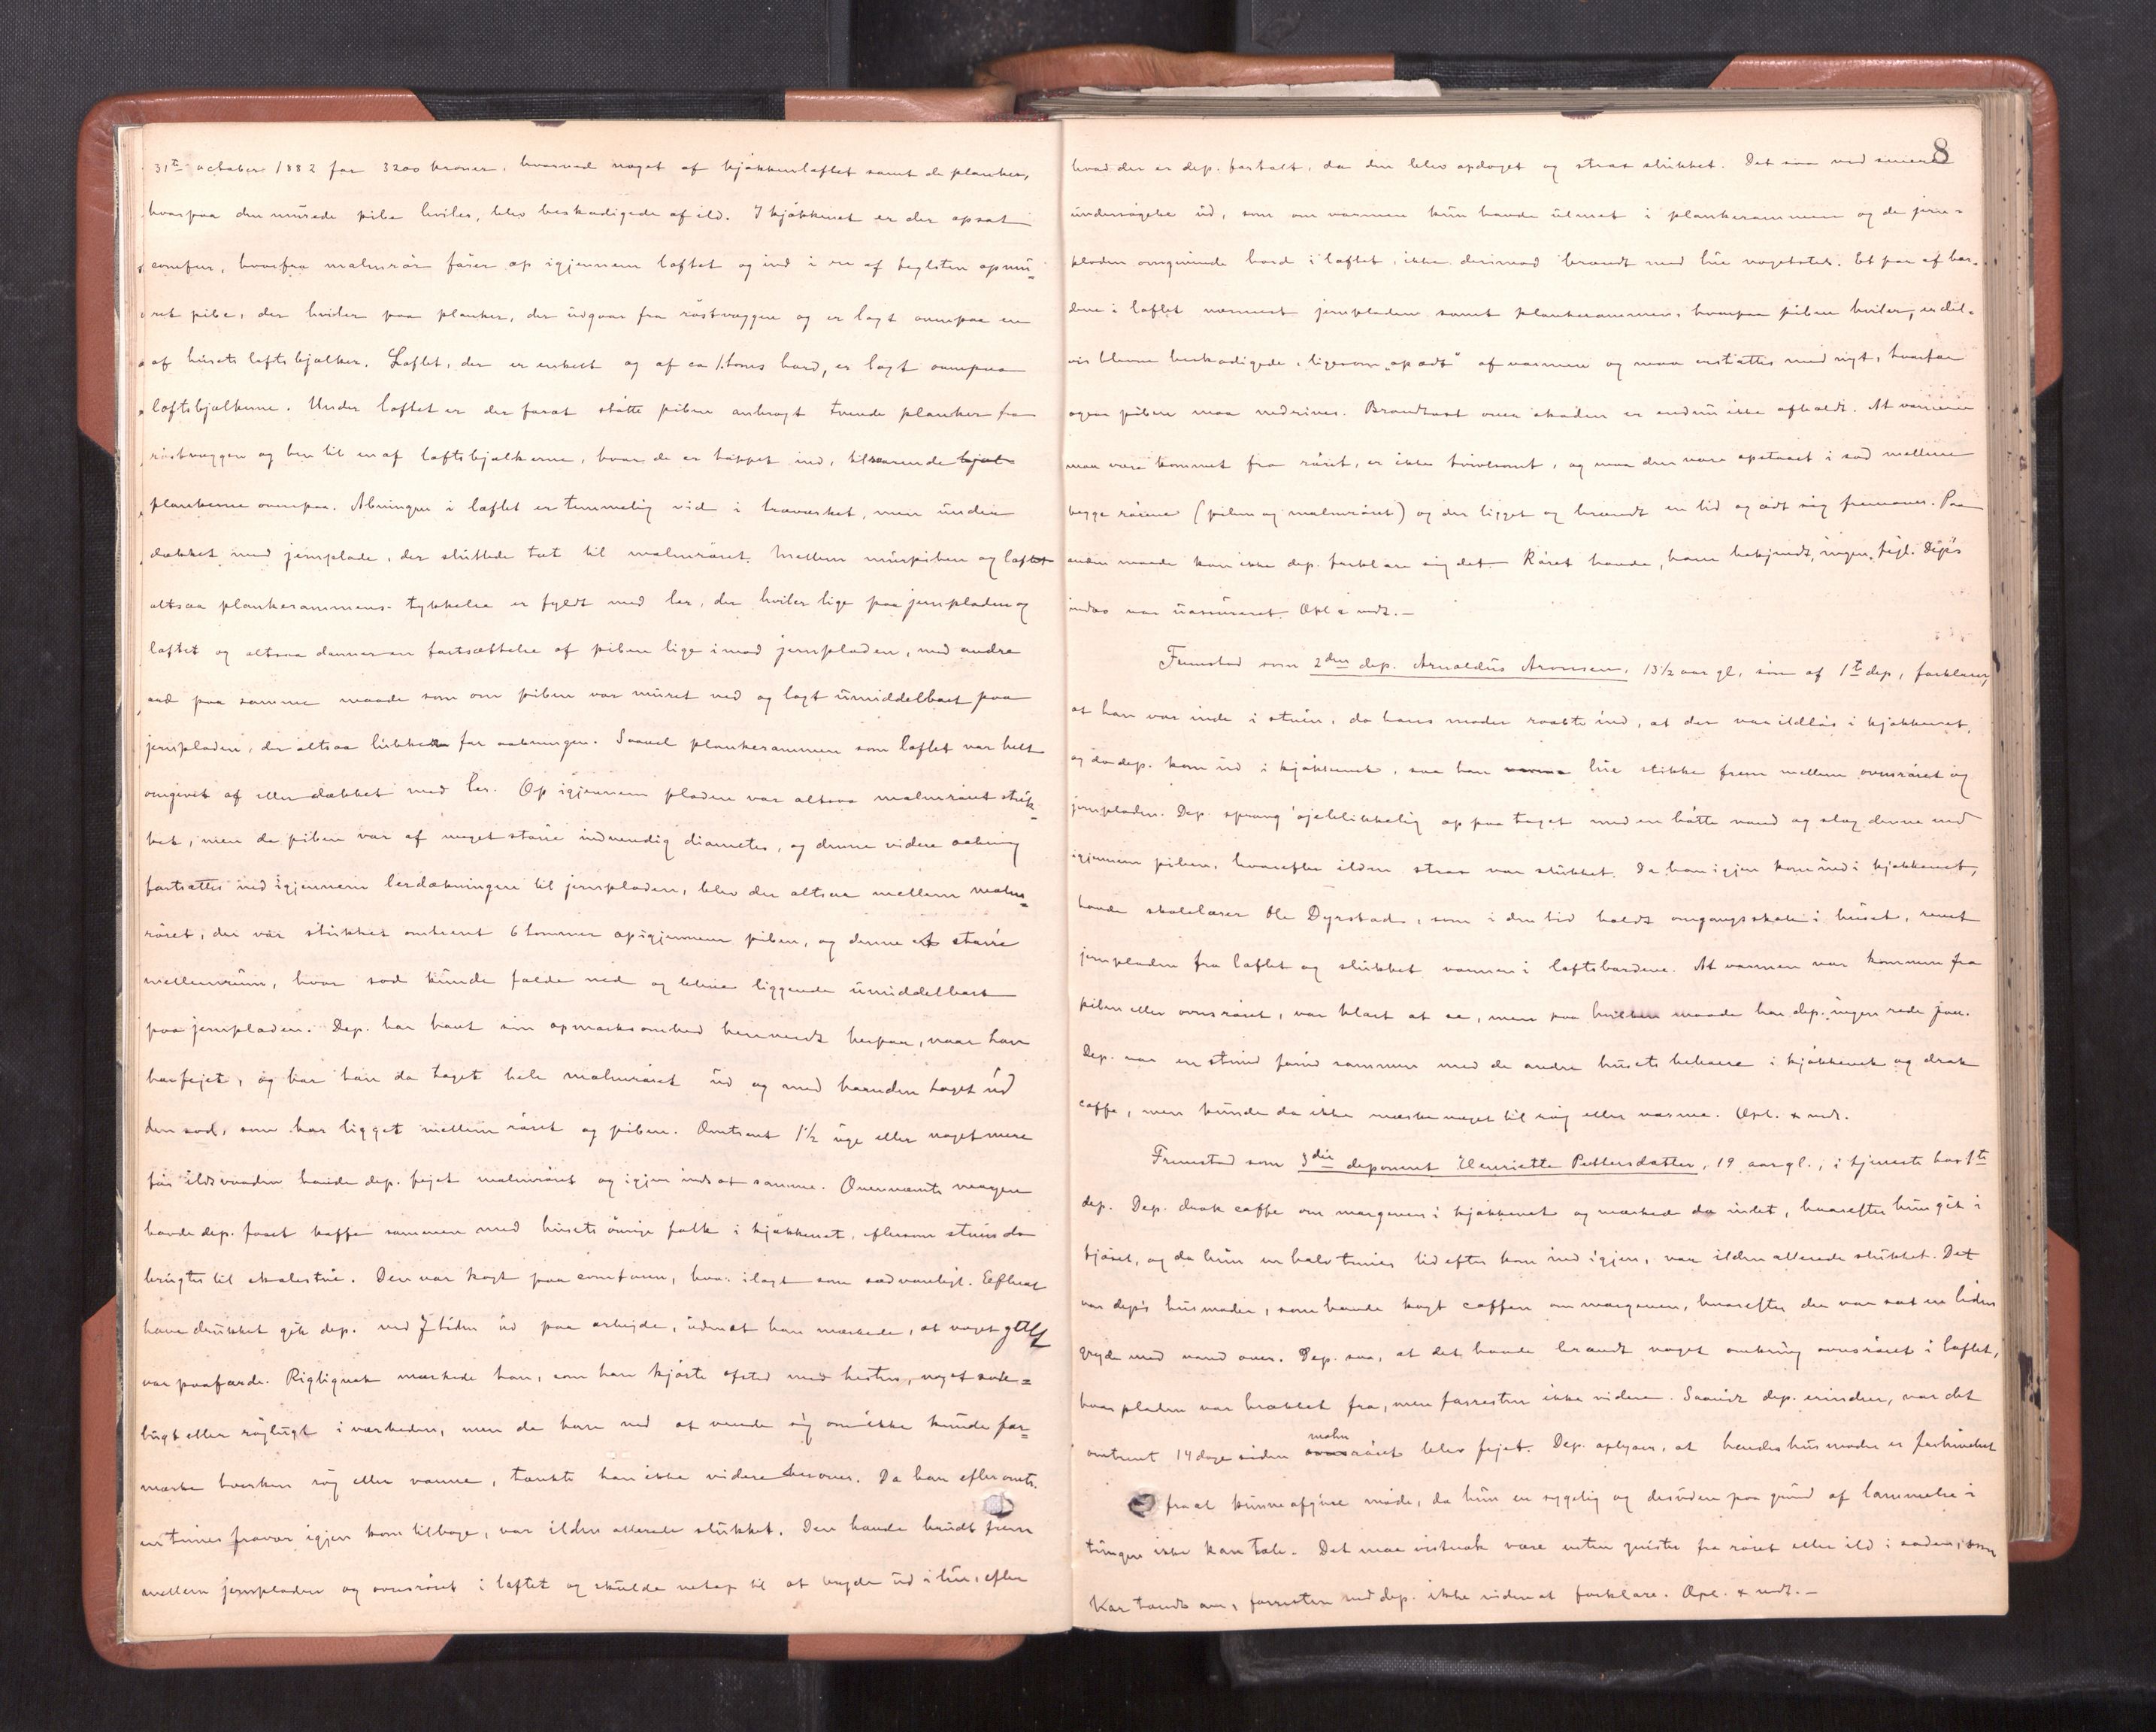 31te october 1882 for 3200 kroner, hvorved noget af kjøkkenloftet samt de planker,
hvorpaa den murede pibe hviler, blev beskadigede af ild. I kjøkkenet er der opsat
comfur, hvorfra malmrør fører op igjennem loftet og ind i en af teglsten opmu-
ret pibe, der hviler paa planker, der udgaar fra røstvæggen og er lagt ovenpaa en
af husets loftsbjælker. Loftet, der er enkelt og af ca 1. toms bord, er lagt ovenpaa
loftsbjælkerne. Under loftet er der forat støtte piben anbragt tvende planker fra
røstvæggen og hen til en af loftsbjælkerne, hvor de er tappet ind, tilsvarende bjæl
plankerne ovenpaa. Åbningen i loftet er temmelig vid i træværket, men under
dækket med jernplade, der sluttede tæt til malmrøret. Mellem murpiben og loftet
altsaa plankerammens tykkelse er fyldt med ler, der hviler lige paa jernpladen og
loftet og altsaa danner en fortsættelse af piben lige imod jernpladen, med andre
ord paa samme maade som om piben var muret ned og lagt umiddelbart paa
jernpladen, der altsaa lukkede for aabningen. Saavel plankerammen som loftet var helt
omgivet af eller dækket med ler. Op igjennem pladen var altsaa malmrøret stuk-
ket, men da piben var af meget større indvendig diameter, og denne videre aabning
fortsattes ned igjennem lerdækningen til jernpladen, blev der altsaa mellem malm-
røret, der var stukket omtrent 6 tommer opigjennem piben, og denne et større
mellemrum, hvor sod kunde falde ned og blive liggende umiddelbart
paa jernpladen. Dep. har havt sin opmærksomhed henvendt herpaa, naar han
har fejet, og har han da taget hele malmrøret ud og med haanden taget ud
den sod, som har ligget mellem røret og piben. Omtrent 1½ uge eller noget mere
før ildsvaaden havde dep. fejet malmrøret og igjen indsat samme. Ovennævnte morgen
havde dep. faaet kaffe sammen med husets øvrige folk i kjøkkenet, eftersom stuen da
brugtes til skolestue. Den var kogt paa comfuren, hvor ilagt som sædvanligt. Efterat
have drukket gik dep. ved 7 tiden ud paa arbejde, uden at han mærkede, at noget galt
var paafærde. Rigtignok mærkede han, som han kjørte afsted med hesten, noget sod-
lugt eller røglugt i nærheden, men da han ved at vende sig om ikke kunde for-
mærke hverken røg eller varme, tænkte han ikke videre herover. Da han efter omtr.
en times fravær igjen kom tilbage, var ilden allerede slukket. Den havde brudt frem
mellem jernpladen og ovnsrøret i loftet og skulde netop til at bryde ud i lue, efter
8
hvad der er dep. fortalt, da den blev opdaget og strax slukket. Det saa ved senere
undersøgelse ud, som om varmen kun havde ulmet i plankerammen og de jern-
pladen omgivende bord i loftet, ikke derimod brændt med lue nogetsteds. Et par af bor-
dene i loftet nærmest jernpladen samt plankerammen, hvorpaa piben hviler, er del-
vis blevne beskadigede, ligesom „opædt“ af varmen og maa erstattes med nyt, hvorfor
ogsaa piben maa nedrives. Brandtaxt over skaden er endnu ikke afholdt. At varmen
maa være kommet fra røret, er ikke tvivlsomt, og maa den være opstaaet i sod mellem
begge rørene (piben og malmrøret) og der ligget og brændt en tid og ædt sig fremover. Paa
anden maade kan ikke dep. forklare sig det. Røret havde, ham bekjendt, ingen fejl. Dep's
indbo var uassureret. Opl & vedt. —
Fremstod som 2den dep. Arnoldus Aronsen, 13½ aar gl, søn af 1te dep, forklarer,
at han var inde i stuen, da hans moder raabte ind, at der var ildløs i kjøkkenet,
og da dep. kom ud i kjøkkenet, saa han varme lue stikke frem mellem ovnsrøret og
jernpladen. Dep. sprang øjeblikkelig op paa taget med en bøtte vand og slog denne ned
igjennem piben, hvorefter ilden strax var slukket. Da han igjen kom ind i kjøkkenet,
havde skolelærer Ole Dyrstad, som i den tid holdt omgangsskole i huset, revet
jernpladen fra loftet og slukket varmen i loftsbordene. At varmen var kommen fra
piben eller ovnsrøret, var klart at se, men paa hvilken maade har dep. ingen rede paa.
Dep. var en stund forud sammen med de andre husets beboere i kjøkkenet og drak
caffe, men kunde da ikke mærke noget til røg eller varme. Opl. & vedt.
Fremstod som 3die deponent Henriette Pettersdatter, 19 aar gl., i tjeneste hos 1te
dep. Dep. drak caffe om morgenen i kjøkkenet og mærkede da intet, hvorefter hun gik i
fjøset, og da hun en halv times tid efter kom ind igjen, var ilden allerede slukket. Det
var dep's husmoder, som havde kogt caffen om morgenen, hvorefter der var sat en liden
gryde med vand over. Dep. saa, at det havde brændt noget omkring ovnsrøret i loftet,
hvor pladen var brækket fra, men forresten ikke videre. Saavidt dep. erindrer, var det
omtrent 14 dage siden ovns malm røret blev fejet. Dep. oplyser, at hendes husmoder er forhindret
fra at kunne afgive møde, da hun er sygelig og desuden paa grund af lammelse i
tungen ikke kan tale. Det maa vistnok være enten gnister fra røret eller ild i soden, som
har tændt an, forresten ved dep. ikke videre at forklare. Opl. & vedt. —